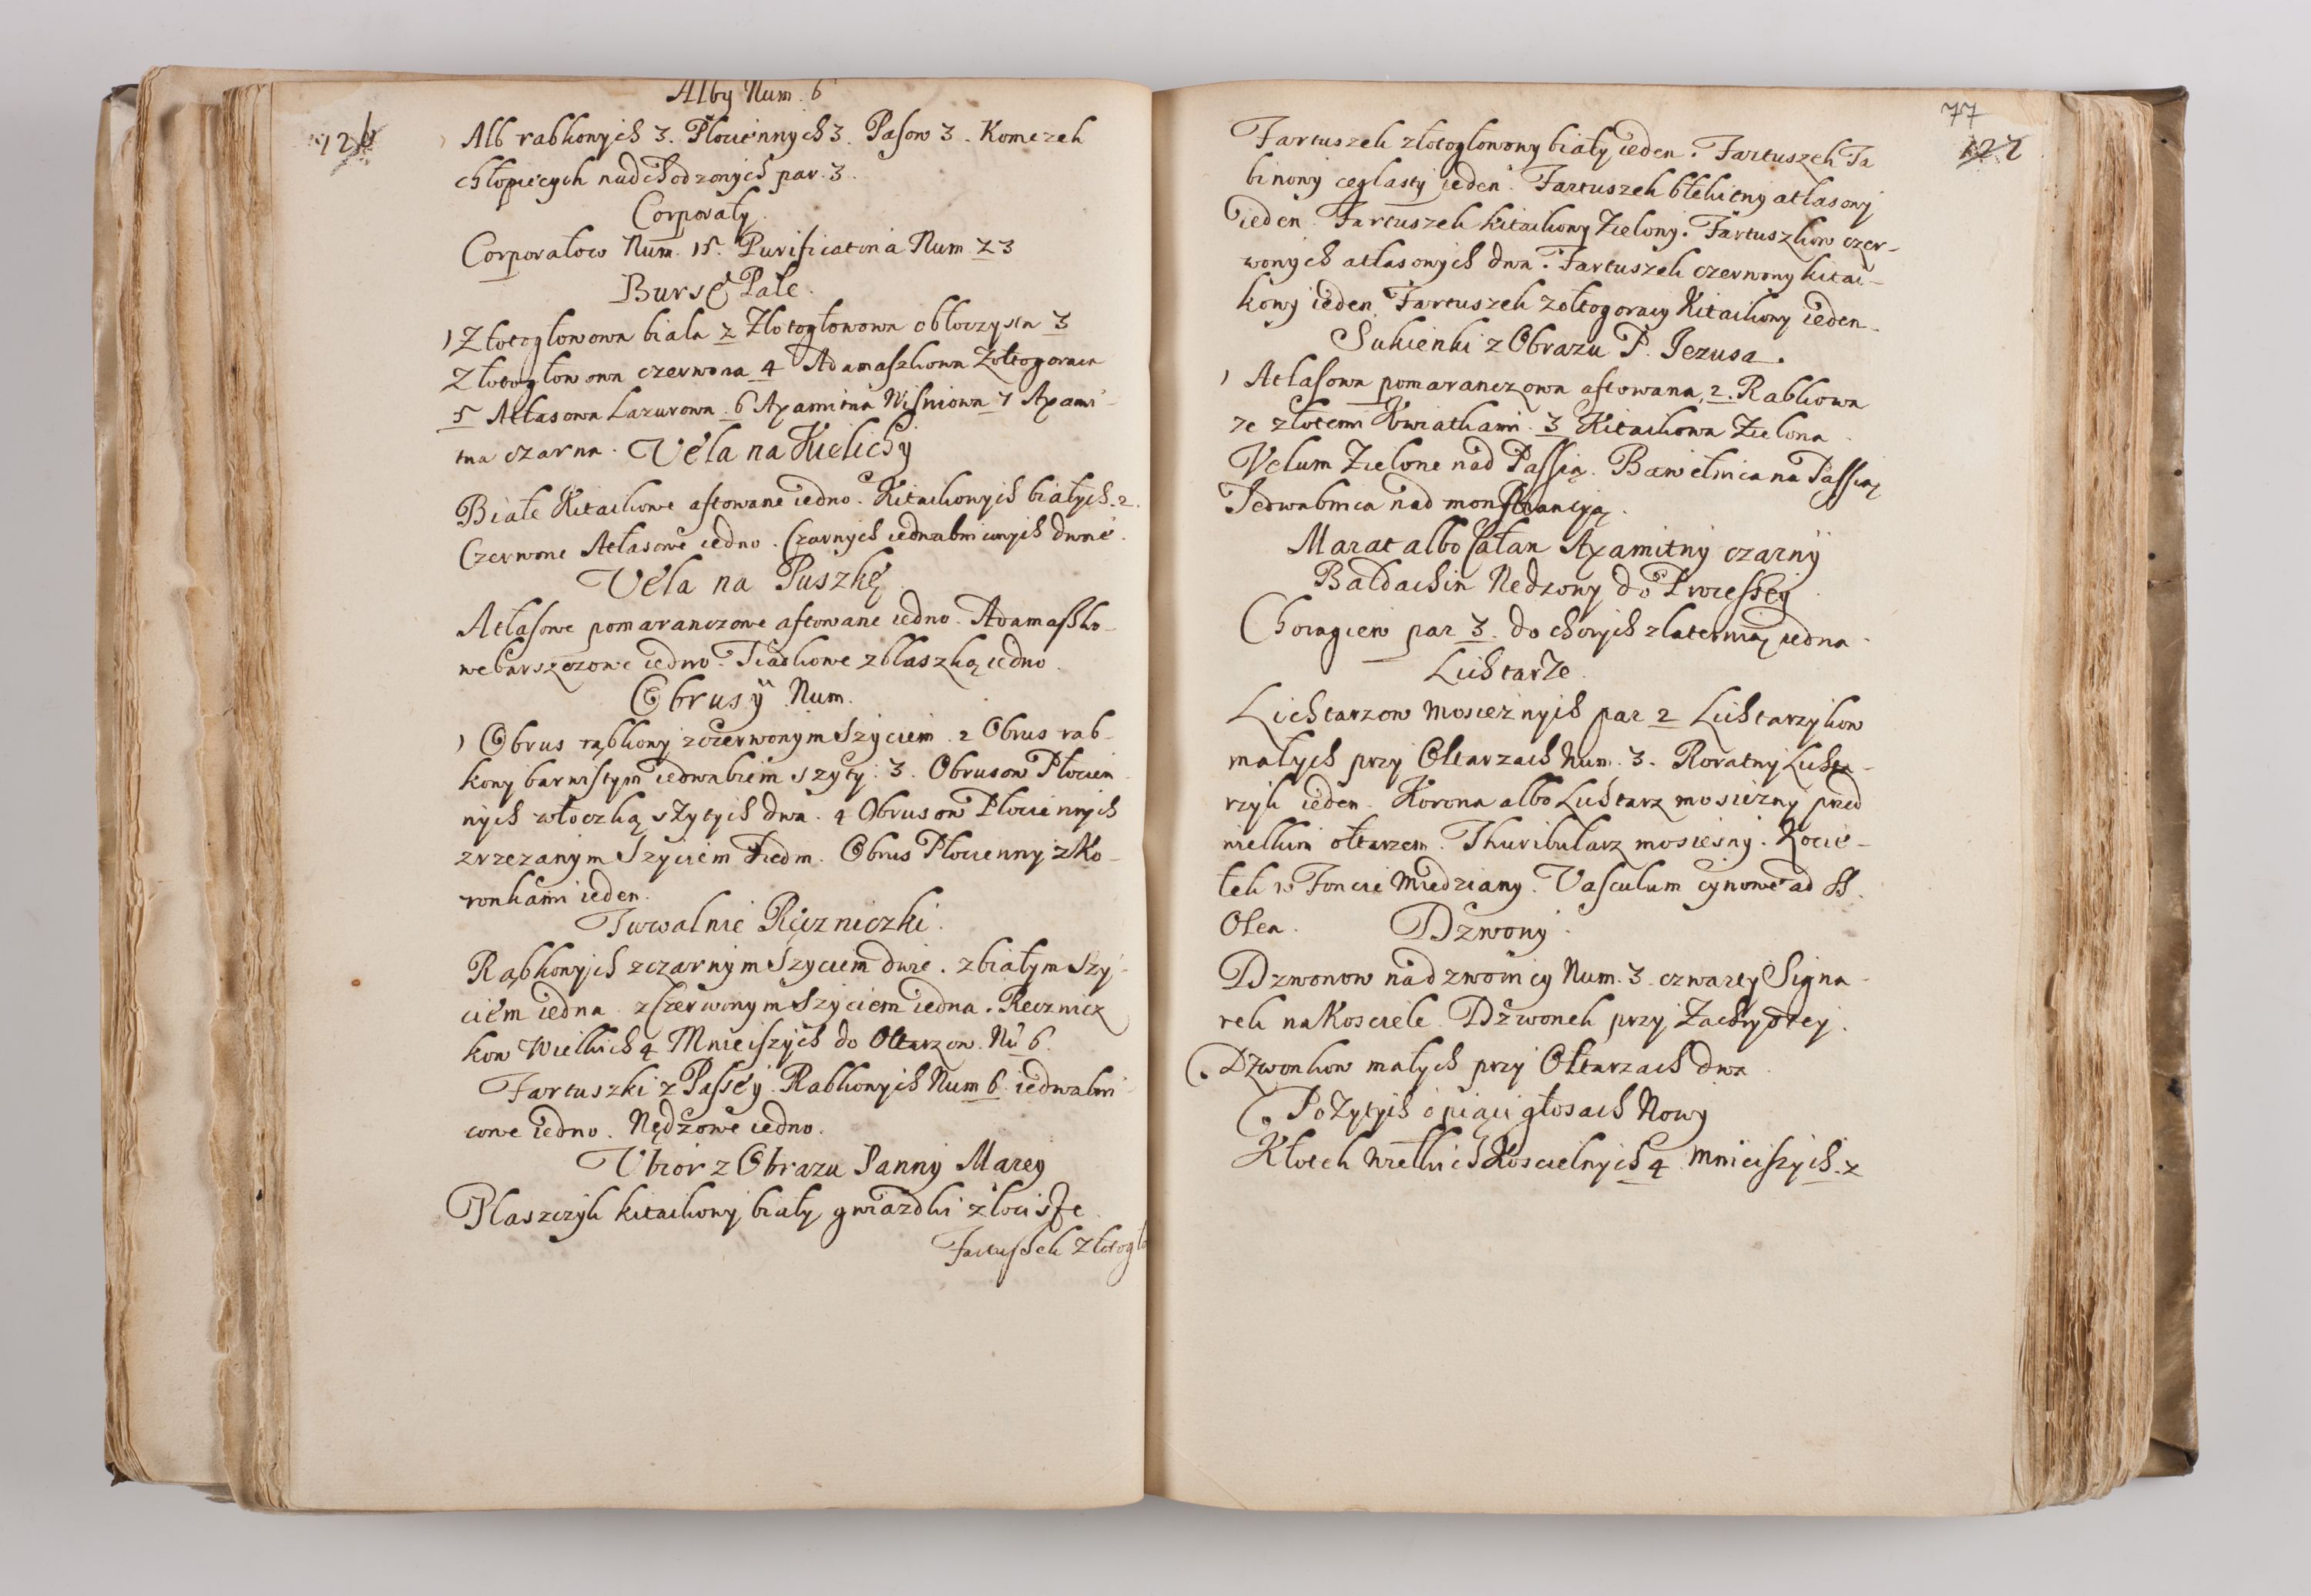 Alby Num. 6
126
Alb rabkowych 3. Płociennych 3. Pasow 3. Komezek
chłopięcych nadchodzonych par. 3.
Corporały.
Corporałow Num. 15. Purificatoria Num. 23
Bursę Pale.
1 Złotogłowowa biała 2 Złotogłowowa obłoczysta 3
Złotogłowowa czerwona 4 Adamaszkowa Zołtogoraca
5 Atłasowa Lazurowa. 6 Axamitna Wiśniowa 7 Axami-
tna czarna. Vela na Kielichy
Białe Kitaikowe aftowane iedno. Kitaikowych białych. 2.
Czerwone Atłasowe iedno. Czarnych iedwabnicznych dwoie.
Vela na Puszkę
Atłasowe pomaranczowe aftowane iedno. Adamaszko-
we barszczowe iedno. Tkaskowe z blaszką iedno.
Obrusÿ Num.
1 Obrus rąbkowy z czerwonym szyciem. 2 Obrus rab-
kowy barwistym iedwabiem szyty. 3. Obrusow Płocien-
nych włoczką szytych dwa. 4 Obrusow Płociennych
z rzezanym szyciem siedm. Obrus Płocienny z Ko-
ronkami ieden.
Tuwalnie Ręczniczki.
Rąbkowych z czarnym szyciem dwie. z białym szy-
ciem iedna z czerwonym szyciem iedna. Ręcznicz
kow Wielkich 4 Mnieiszych do Ołtarzow. Nu 6.
Fartuszki z Passÿ. Rabkowych Num 6. iedwabni-
cowe iedno. Nędzowe iedno.
Vbior z Obrazu Panny Mareÿ
Płaszczyk kitaikowy biały gwiazdki złociste.
Fartuszek Złotogło
77
127
Fartuszek złotogłowowy biały ieden. Fartuszek Ta
binowy ceglasty ieden. Fartuszek błekitny atłasowy
ieden. Fartuszek kitaikowy Zielony. Fartuszkow czer-
wonych atłasowych dwa. Fartuszek czerwony kitai-
kowy ieden. Fartuszek zołtogoracy Kitaikowy ieden.
Sukienki z Obrazu P. Jezusa.
1 Atłasowa pomaranczowa aftowana, 2. Rabkowa
ze złotemi Kwiatkami. 3 Kitaikowa Zielona.
Velum Zielone nad Passią. Bawełnica na Passią
Jedwabnica nad monstrancyą.
Marat albo całun Axamitny czarnÿ
Baldachin Nedzowy do Processÿ.
Choragiew par 3. do chorych z laternią iedna.
Lichtarze.
Lichtarzow Mosieznych par 2 Lichtarzykow
małych przy Ołtarzach Num. 3. Roratny Lichta-
rzyk ieden. Korona albo Lichtarz mosiezny przed
wielkim ołtarzem. Thuribularz mosiesny. Kocie-
łek w Foncie Miedziany. Vasculum cynowe ad SS.
Olea. Dzwony.
Dzwonow na dzwonicy Num. 3. czwarty Signa-
rek na Kosciele. Dzwonek przy Zachrystyÿ.
Dzwonkow małych przy Ołtarzach dwa.
Pozytyw o piąci głosach Nowy
Kłotek Wielkich Koscielnych 4 Mnieiszych. 2